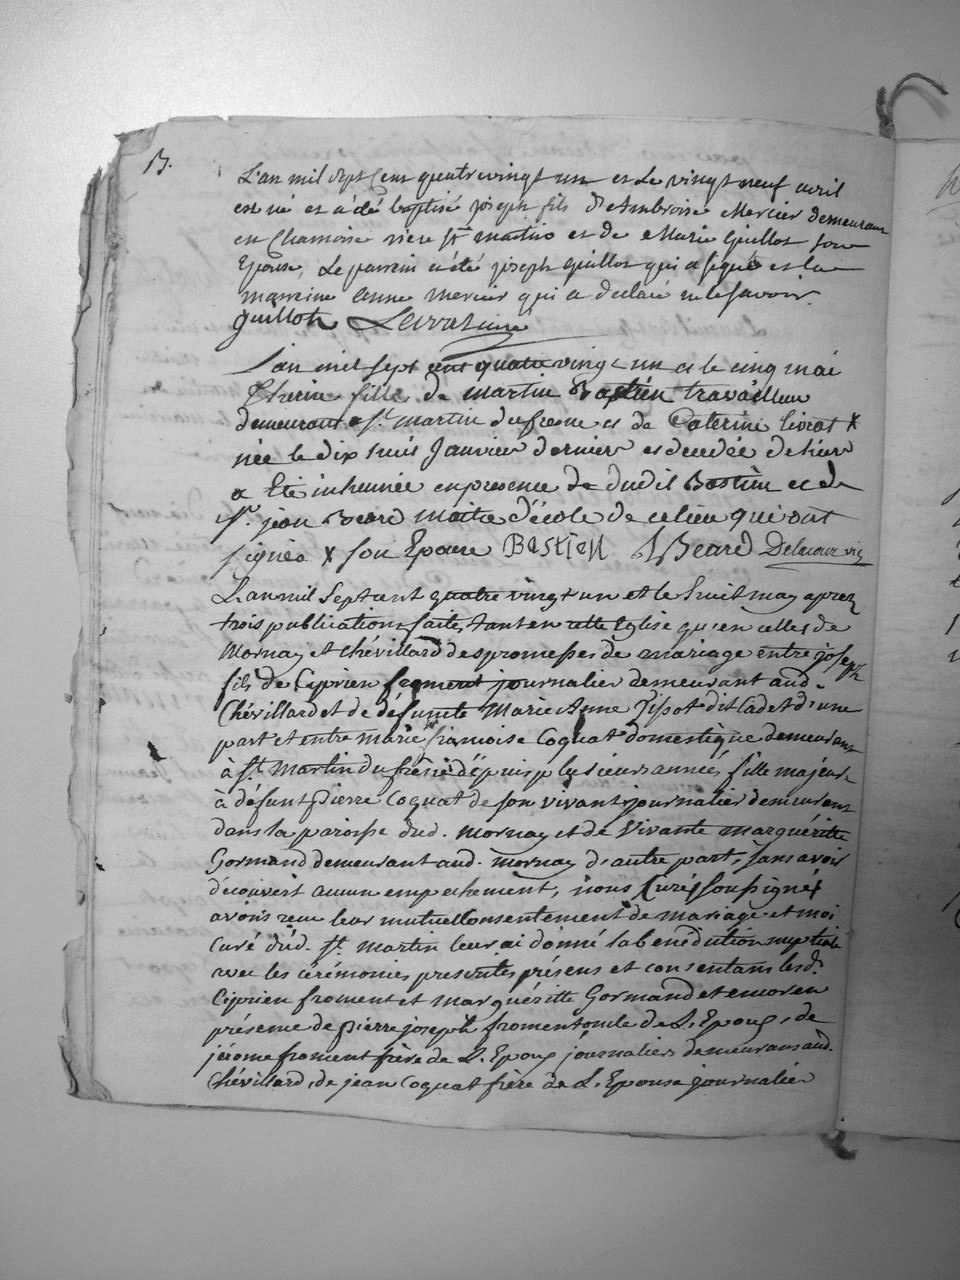 B.
L'an mil sept Cent quatrevingt un et Le vingt neuf avril
est né et a été baptisé joseph fils d'Ambroise Mercier demeurant
en Chamoise riere St martin et de Marie Guillot son
Epouse, Le parrain a été joseph guillot qui a signé et la
marraine anne mercier qui a declaré ne le savoir.
guillot
L'an mil sept cent quatre vingt un et le cinq mai
fille de martin Bastien travailleur
demeurant a St martin du fresne et de Caterine livrat x
née le dix huit Janvier dernier et decedée de hier
a Eté inhumée en presence de dudit Bastien et de
Sr. jean Beard maitre d'école de ce lieu qui ont
signés x son Epouse BASTIEN Beard Delacour vic
L'an mil sept cent quatre vingt un et le huit may apres
trois publications faites tant en cette Eglise qu'en celles de
Mornay et Chévillard des promesses de mariage entre joseph
fils de Ciprien froment journalier demeurant aud.
Chévillard et de défunte Marie Anne Tissot dit Cadet d'une
part et entre marie françoise Coquat domestique demeurant
à St. Martin du frêne depuis plusieurs années, fille majeure
à défunt Pierre Coquat de son vivant journalier demeurant
dans la paroisse dud. mornay et de vivante marguéritte
Gormand demeurant aud. mornay d'autre part, sans avoir
découvert aucun empechement, nous Curé soussigné
avons reçu leur mutuel consentement de mariage et moi
Curé dud. St. Martin leur ai donné la benediction nuptiale
avec les cérémonies prescrites présens et consentans lesd.
Ciprien froment et marguéritte Gormand et encor en
présence de pierre joseph froment oncle de L'Epoux, de
jérome froment frère de L'Epoux journaliers demeurans aud.
Chévillard, de jean Coquat frère de L'Epouse journalier